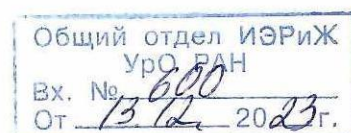 Общий отдел ИЭРиЖ
УрО РАН
Вх. № 600
От 13.12. 2023г.